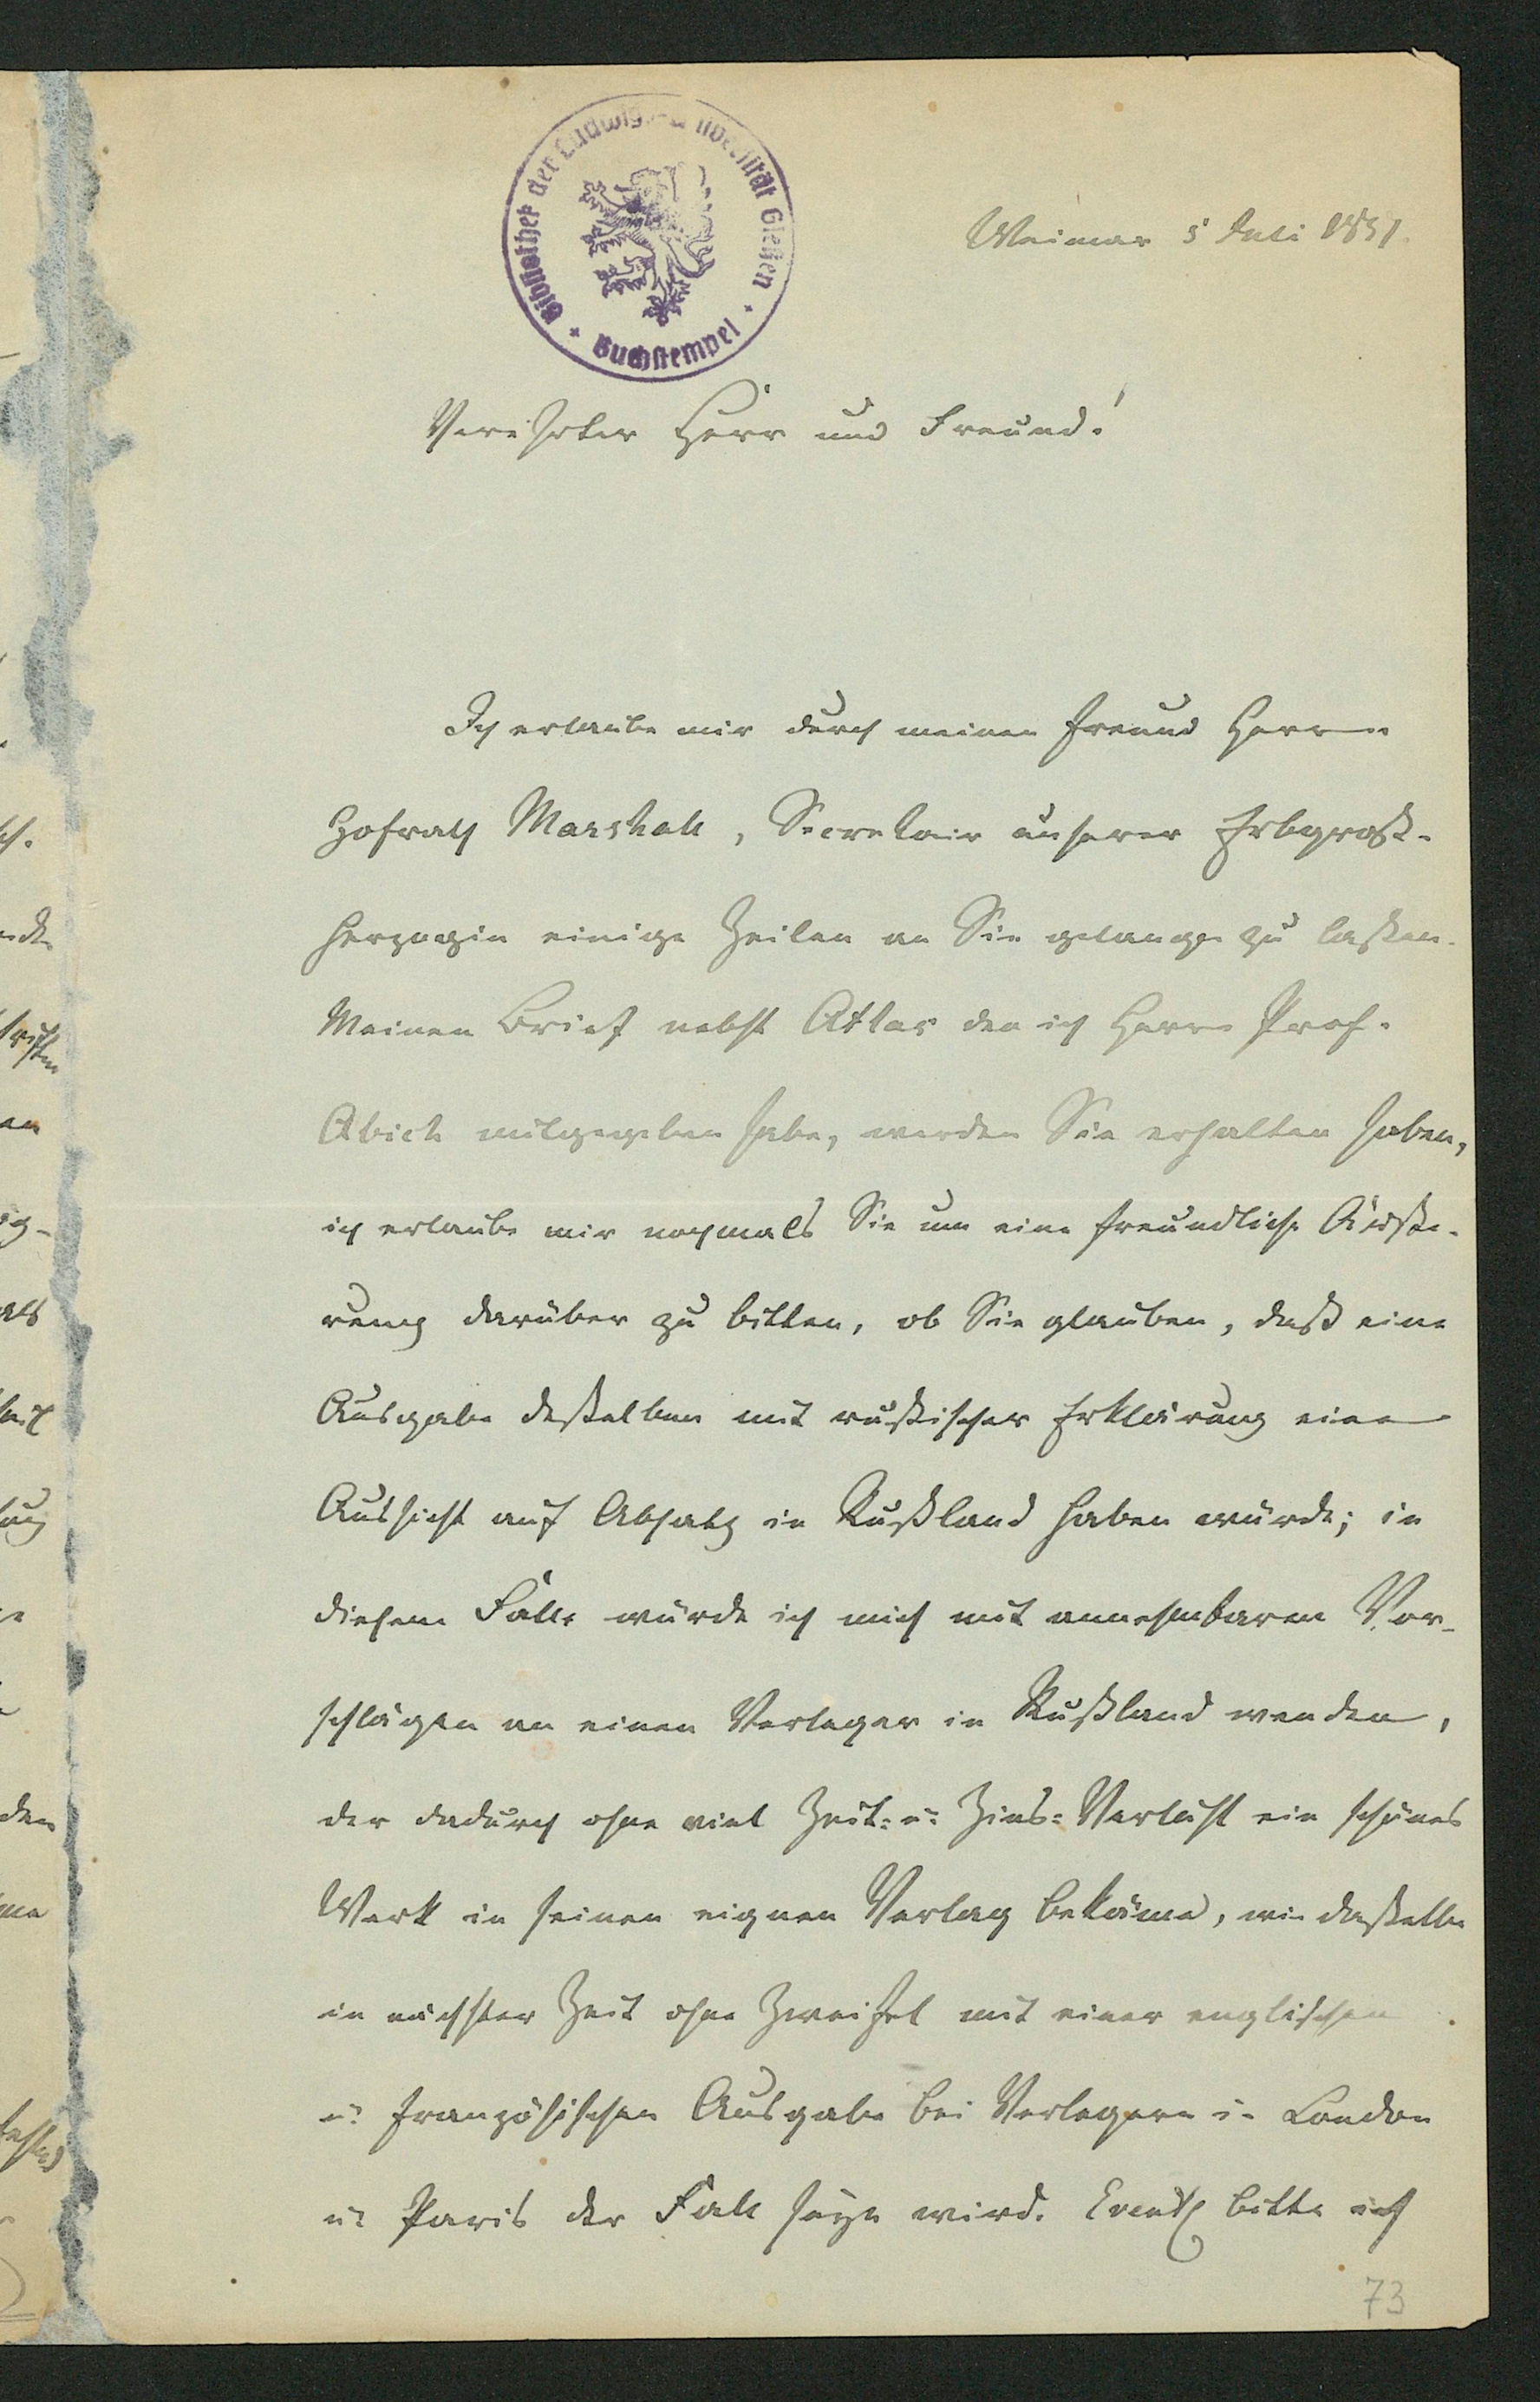 Bibliothek der Ludwigs-Universität Gießen
Buchstempel
Weimar 5 Juli 1851.
Verehrter Herr und Freund!
Ich erlaube mir durch meinen Freund Herrn
Hofrath Marshall, Secretair unserer Erbgroß-
herzogin einige Zeilen an Sie gelangen zu laßen.
Meinen Brief nebst Atlas den ich Herrn Prof.
Abich mitgegeben habe, werden Sie erhalten haben,
ich erlaube mir nochmals Sie um eine freundliche Äuße-
rung darüber zu bitten, ob Sie glauben, daß eine
Ausgabe deßelben mit rußischer Erklärung eine
Aussicht auf Absatz in Rußland haben würde; in
diesem Falle würde ich mich mit annehmbaren Vor-
schlägen an einen Verleger in Rußland wenden,
der dadurch ohne viel Zeit- u. Zins-Verlust ein schönes
Werk in seinen eignen Verlag bekäme, wie daßelbe
in nächster Zeit ohne Zweifel mit einer englischen
u. französischen Ausgabe bei Verlegern in London
u. Paris der Fall seyn wird. Eventl bitte ich
73